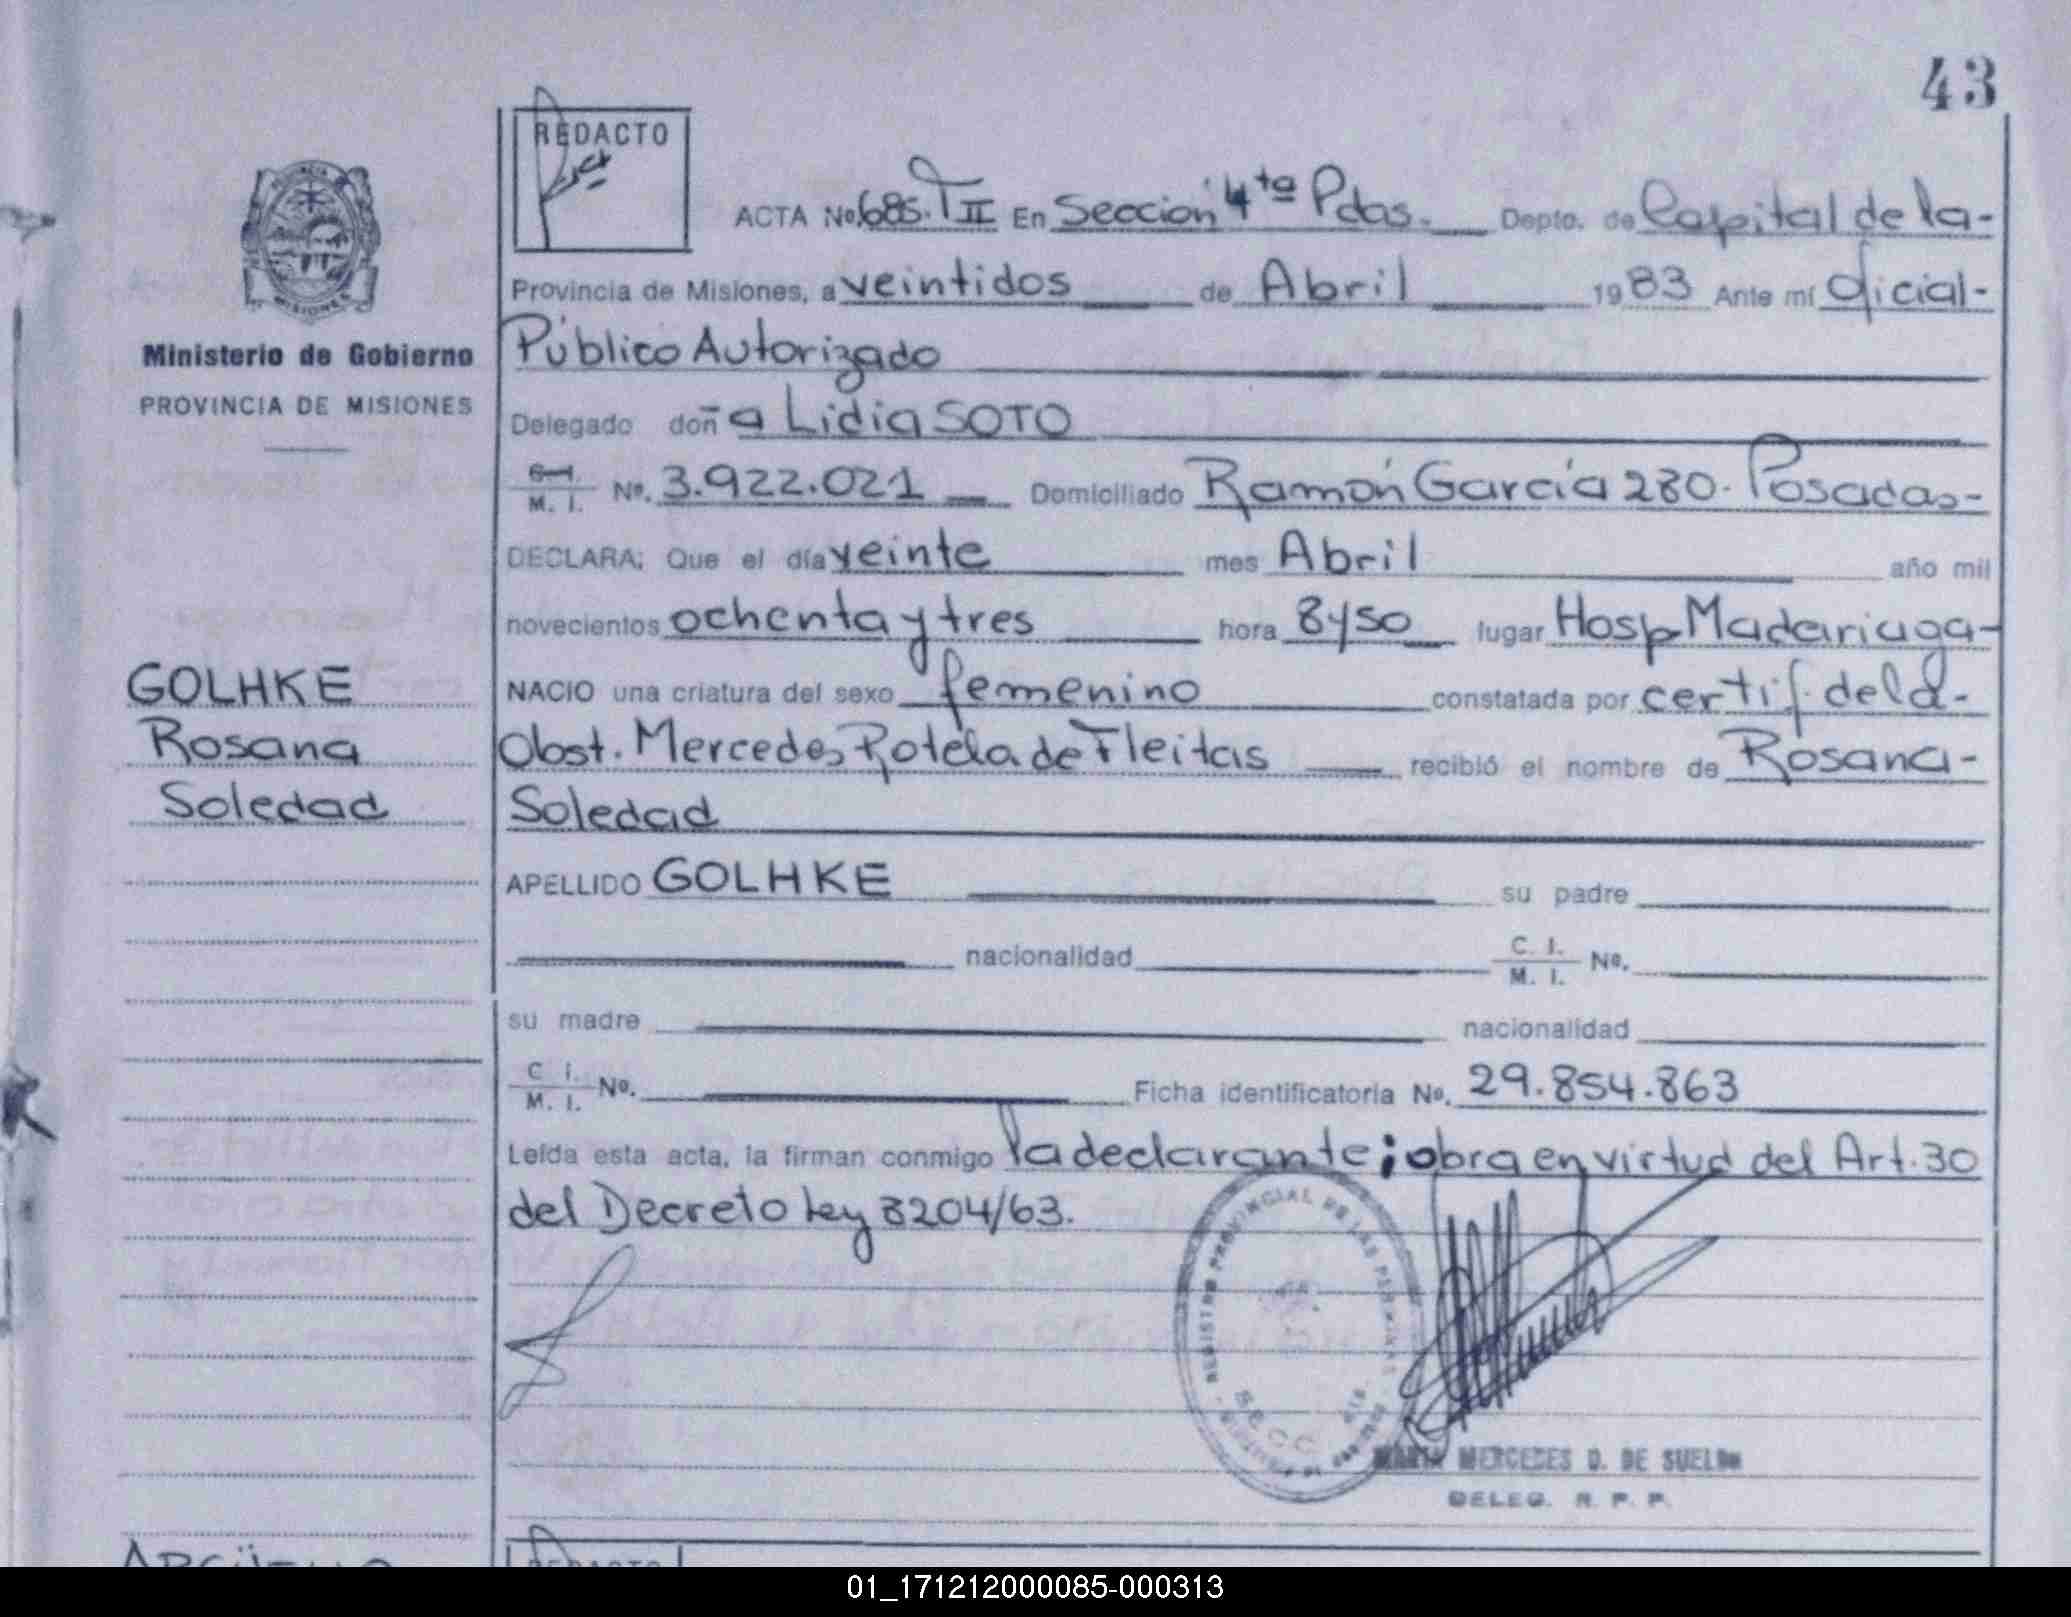 43
REDACTO
ACTA No. 685. T II En Sección 4ta Pdas. Depto. de Capital de la-
Provincia de Misiones, a veintidos de Abril 1983 Ante mí Oficial-
Ministerio de Gobierno
PROVINCIA DE MISIONES
Público Autorizado
Delegado doña Lidia SOTO
C. I. M. I. No. 3.922.021 Domiciliado Ramón García 280. Posadas-
DECLARA; Que el día veinte mes Abril año mil
novecientos ochenta y tres hora 8 y 50 lugar Hosp Madariaga-
GOLHKE
Rosana
Soledad
NACIO una criatura del sexo femenino constatada por certif. de la-
Obst. Mercedes Rotela de Fleitas recibió el nombre de Rosana-
Soledad
APELLIDO GOLHKE su padre
nacionalidad C. I. M. I. No.
su madre nacionalidad
C. I. M. I. No. Ficha identificatoria No. 29.854.863
Leída esta acta, la firman conmigo la declarante; obra en virtud del Art. 30
del Decreto Ley 8204/63.
REGISTRO PROVINCIAL DE LAS PERSONAS
SECC. 4ta
MARIA MERCEDES D. DE SUELDO
DELEG. R. P. P.
REDACTO
01_171212000085-000313